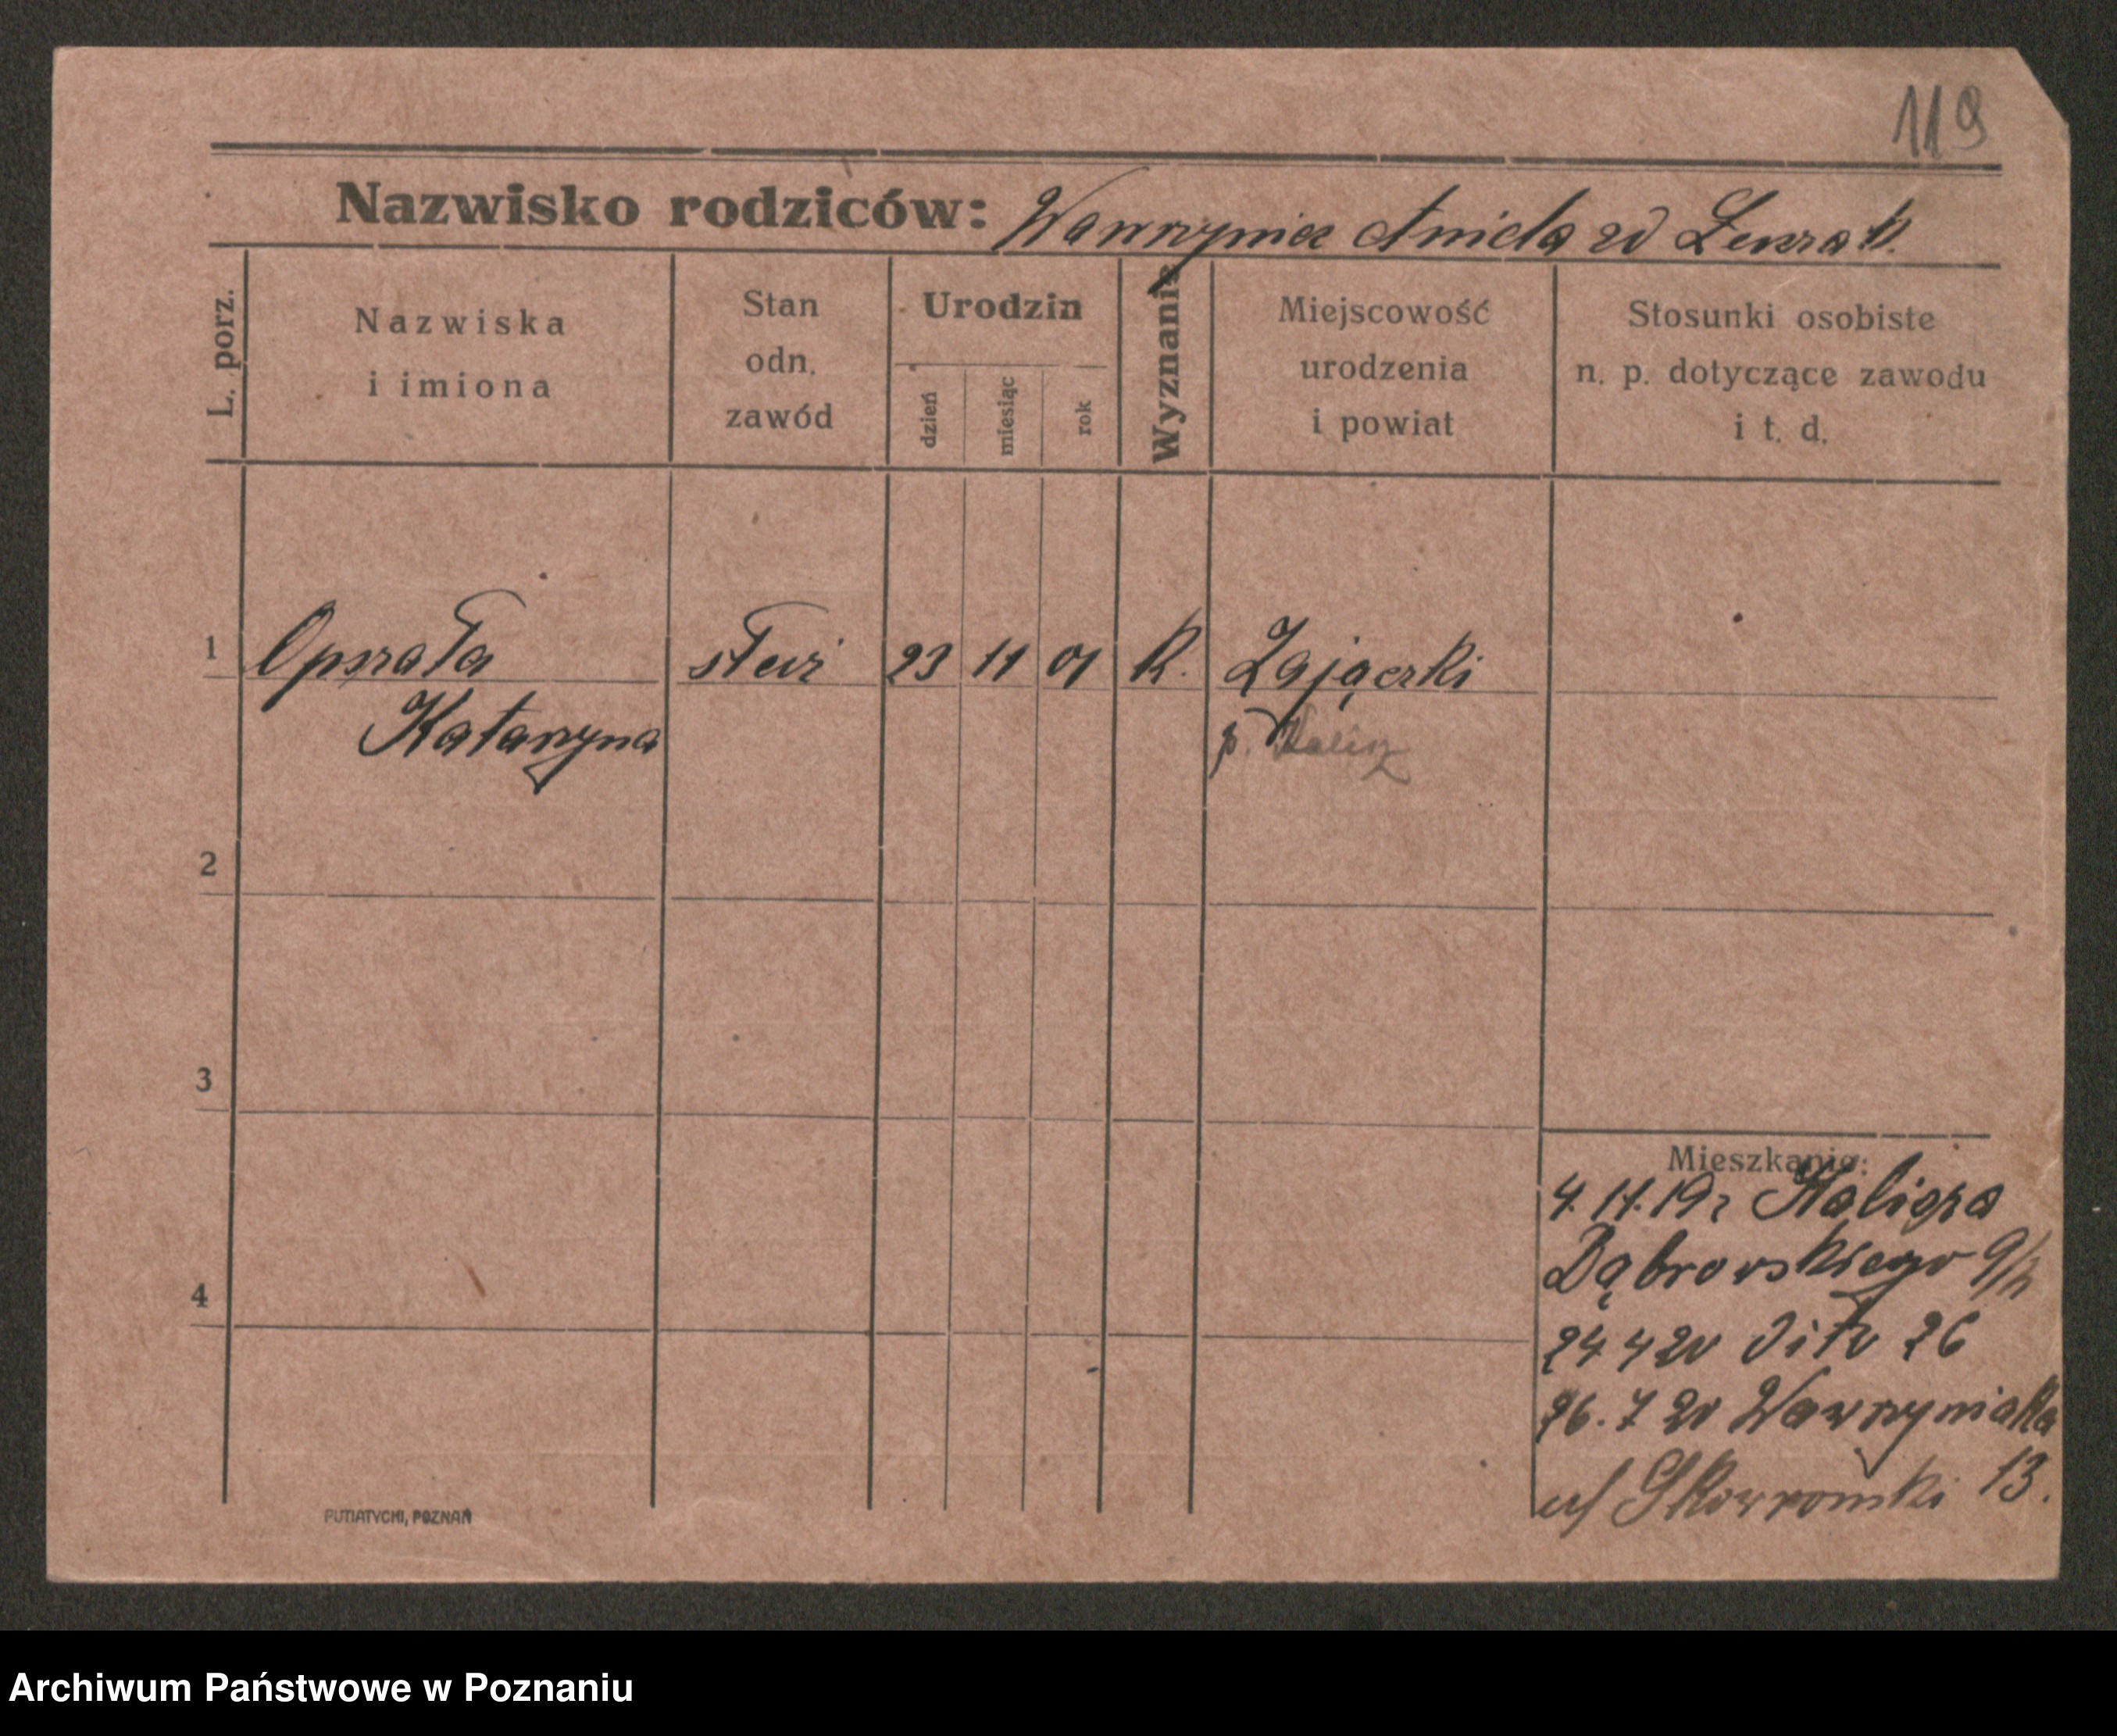 119
Nazwisko rodziców: Wawrzyniec Aniela zd Lenzak
L. porz.
Nazwiska
i imiona
Stan
odn.
zawód
Urodzin
dzień
miesiąc
rok
Wyznanie
Miejscowość
urodzenia
i powiat
Stosunki osobiste
n. p. dotyczące zawodu
i t. d.
1 Opszała służ 23 11 01 R. Zajączki
Katarzyna p. Kalisz
2
3
4
Mieszkanie:
4.11.19r Kaliska
Dąbrowskiego
24 4 20 dito 26
26.7 20 Wawrzyniaka
u/ Skowroński 13.
PUTIATYCKI, POZNAŃ
Archiwum Państwowe w Poznaniu